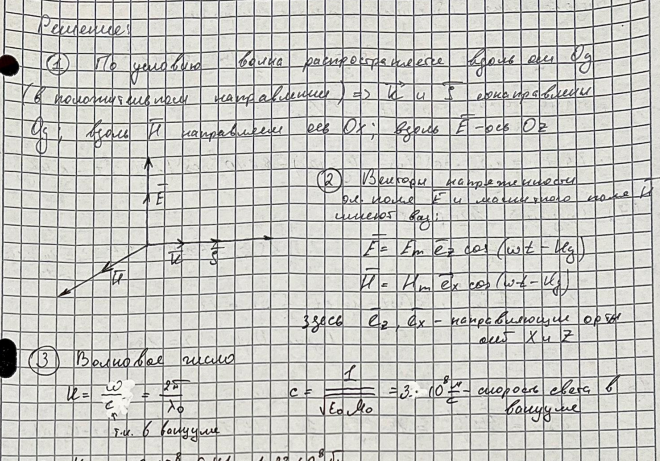 Решение:
① По условию волна распространяется вдоль оси Oy
(в положительном направлении) => k⃗ и S̄ сонаправлены
Oy; вдоль H̄ направляем ось Ox; вдоль Ē - ось Oz
Ē
② Векторы напряженности
эл. поля Ē и магнитного поля H̄
имеют вид:
Ē = Eₘ ēz cos(ωt - ky)
H̄ = Hₘ ēx cos(ωt - ky)
H̄ k̄ S̄
здесь ēz, ēx - направляющие орты
осей X и Z
③ Волновое число
k = ω/c = 2π/λ₀ c = 1/√ε₀μ₀ = 3·10⁸ м/с - скорость света в
вакууме
т.к. в вакууме